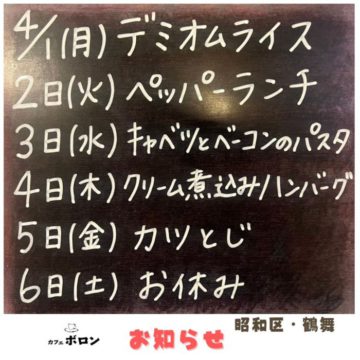 4/1(月)デミオムライス
2日(火)ペッパーランチ
3日(水)キャベツとベーコンのパスタ
4日(木)クリーム煮込みハンバーグ
5日(金)カツとじ
6日(土)お休み
カフェ ボロン
お知らせ
昭和区・鶴舞